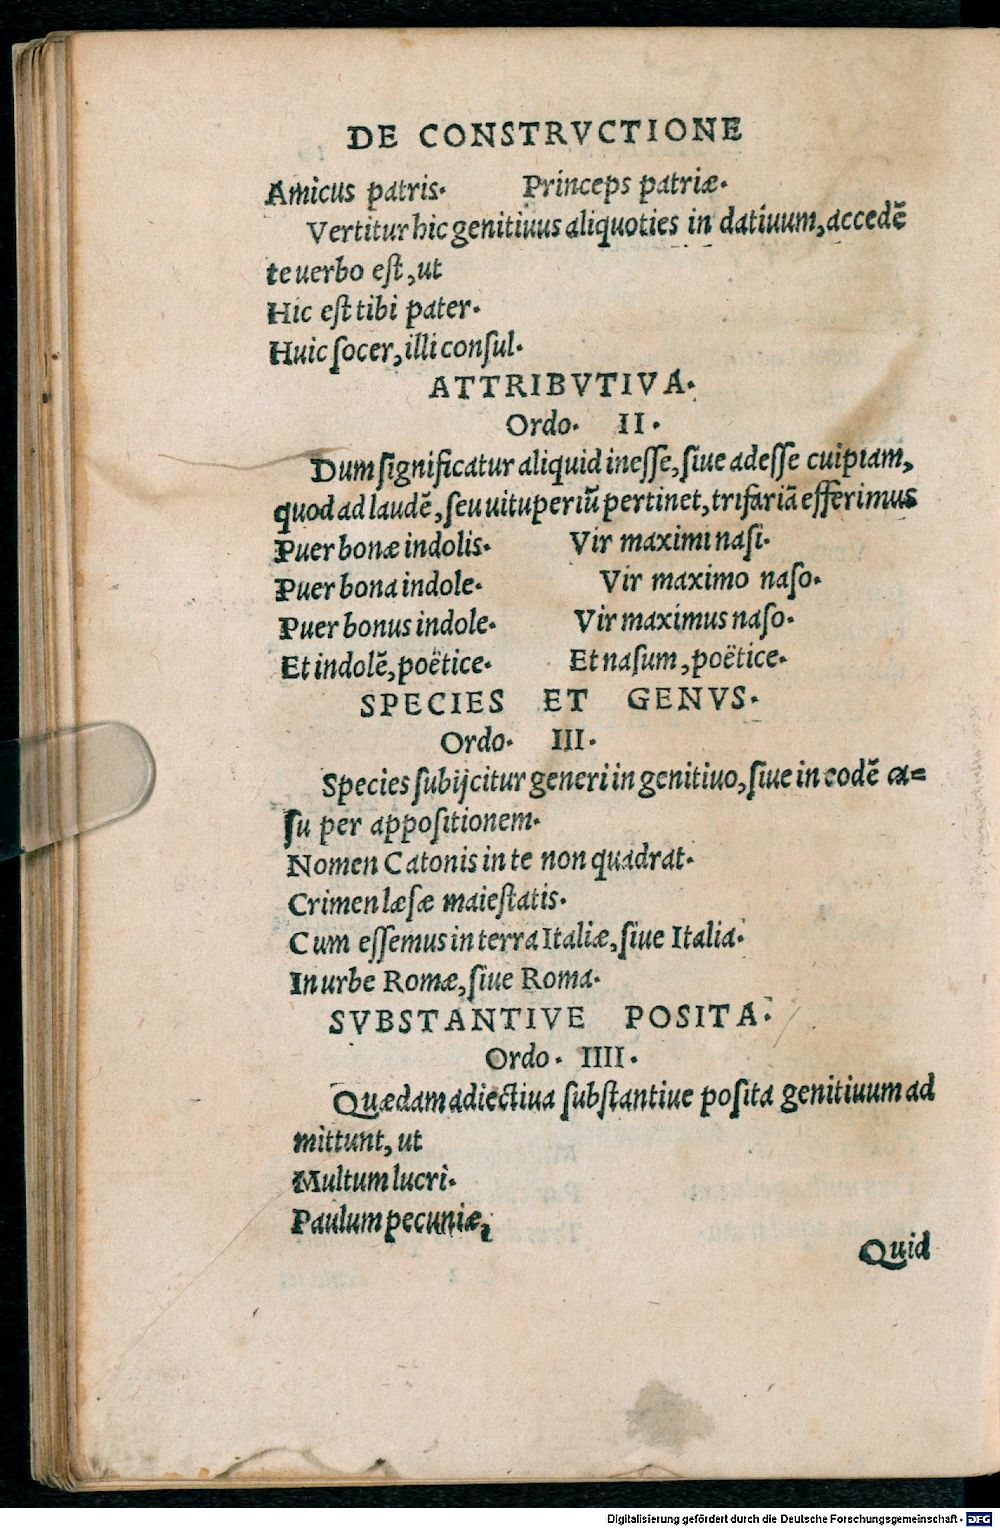 DE CONSTRVCTIONE
Amicus patris. Princeps patriæ.
Vertitur hic genitiuus aliquoties in datiuum, accedē
te uerbo eſt, ut
Hic eſt tibi pater.
Huic ſocer, illi conſul.
ATTRIBVTIVA.
Ordo. II.
Dum ſignificatur aliquid ineſſe, ſiue adeſſe cuipiam,
quod ad laudē, ſeu uituperiū pertinet, trifariā efferimus
Puer bonæ indolis. Vir maximi naſi.
Puer bona indole. Vir maximo naſo.
Puer bonus indole. Vir maximus naſo.
Et indolē, poëtice. Et naſum, poëtice.
SPECIES ET GENVS.
Ordo. III.
Species ſubijcitur generi in genitiuo, ſiue in eodē ca=
ſu per appoſitionem.
Nomen Catonis in te non quadrat.
Crimen læſæ maieſtatis.
Cum eſſemus in terra Italiæ, ſiue Italia.
In urbe Romæ, ſiue Roma.
SVBSTANTIVE POSITA.
Ordo. IIII.
Quædam adiectiua ſubſtantiue poſita genitiuum ad
mittunt, ut
Multum lucri.
Paulum pecuniæ,
Quid
Digitalisierung gefördert durch die Deutsche Forschungsgemeinschaft - DFG